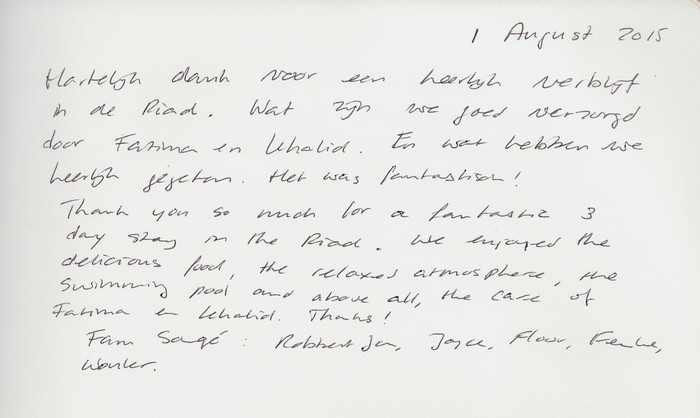 1 August 2015
Hartelijk dank voor een heerlijk verblijf
in de Riad. Wat zijn we goed verzorgd
door Fatima en Khalid. En wat hebben we
heerlijk gegeten. Het was fantastisch!
Thank you so much for a fantastic 3
day stay in the Riad. We enjoyed the
delicious food, the relaxed atmosphere, the
swimming pool and above all, the care of
Fatima en Khalid. Thanks!
Fam Sagé: Robbert Jan, Joyce, Floor, Femke,
Wouter.